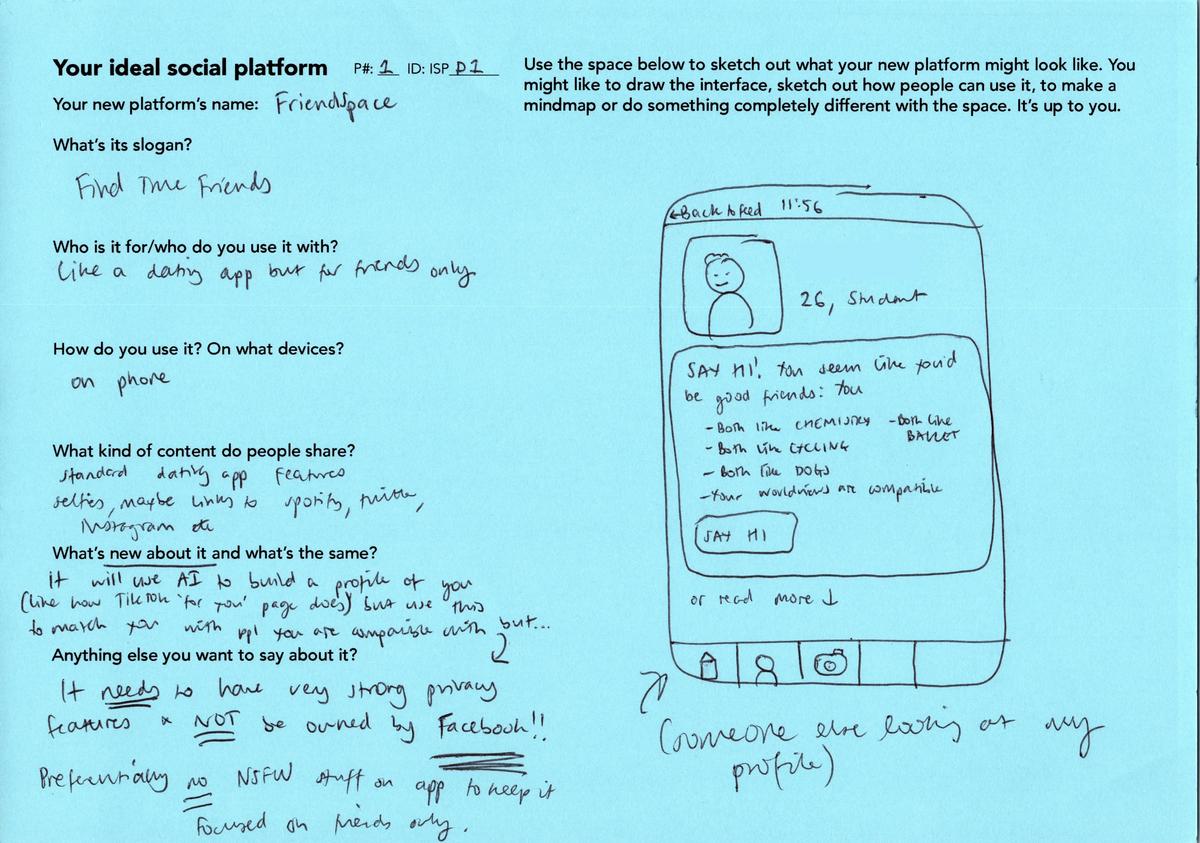 Your ideal social platform P#: 1 ID: ISP P1
Your new platform's name: Friendspace
What's its slogan?
Find True Friends
Who is it for/who do you use it with?
Like a dating app but for friends only
How do you use it? On what devices?
on phone
What kind of content do people share?
standard dating app features
selfies, maybe links to spotify, twitter,
Instagram etc
What's new about it and what's the same?
it will use AI to build a profile of you
(like how TikTok 'for you' page does) but use this
to match you with ppl you are compatible with but...
Anything else you want to say about it?
It needs to have very strong privacy
features & NOT be owned by Facebook!!
Preferentially no NSFW stuff on app to keep it
focused on friends only.
Use the space below to sketch out what your new platform might look like. You
might like to draw the interface, sketch out how people can use it, to make a
mindmap or do something completely different with the space. It's up to you.
←Back to feed 11:56
26, Student
SAY HI! You seem like you'd
be good friends: You
- Both like CHEMISTRY - Both like
BALLET
- Both like CYCLING
- Both like DOGS
- Your worldviews are compatible
SAY HI
or read more ↓
(someone else looking at my
profile)